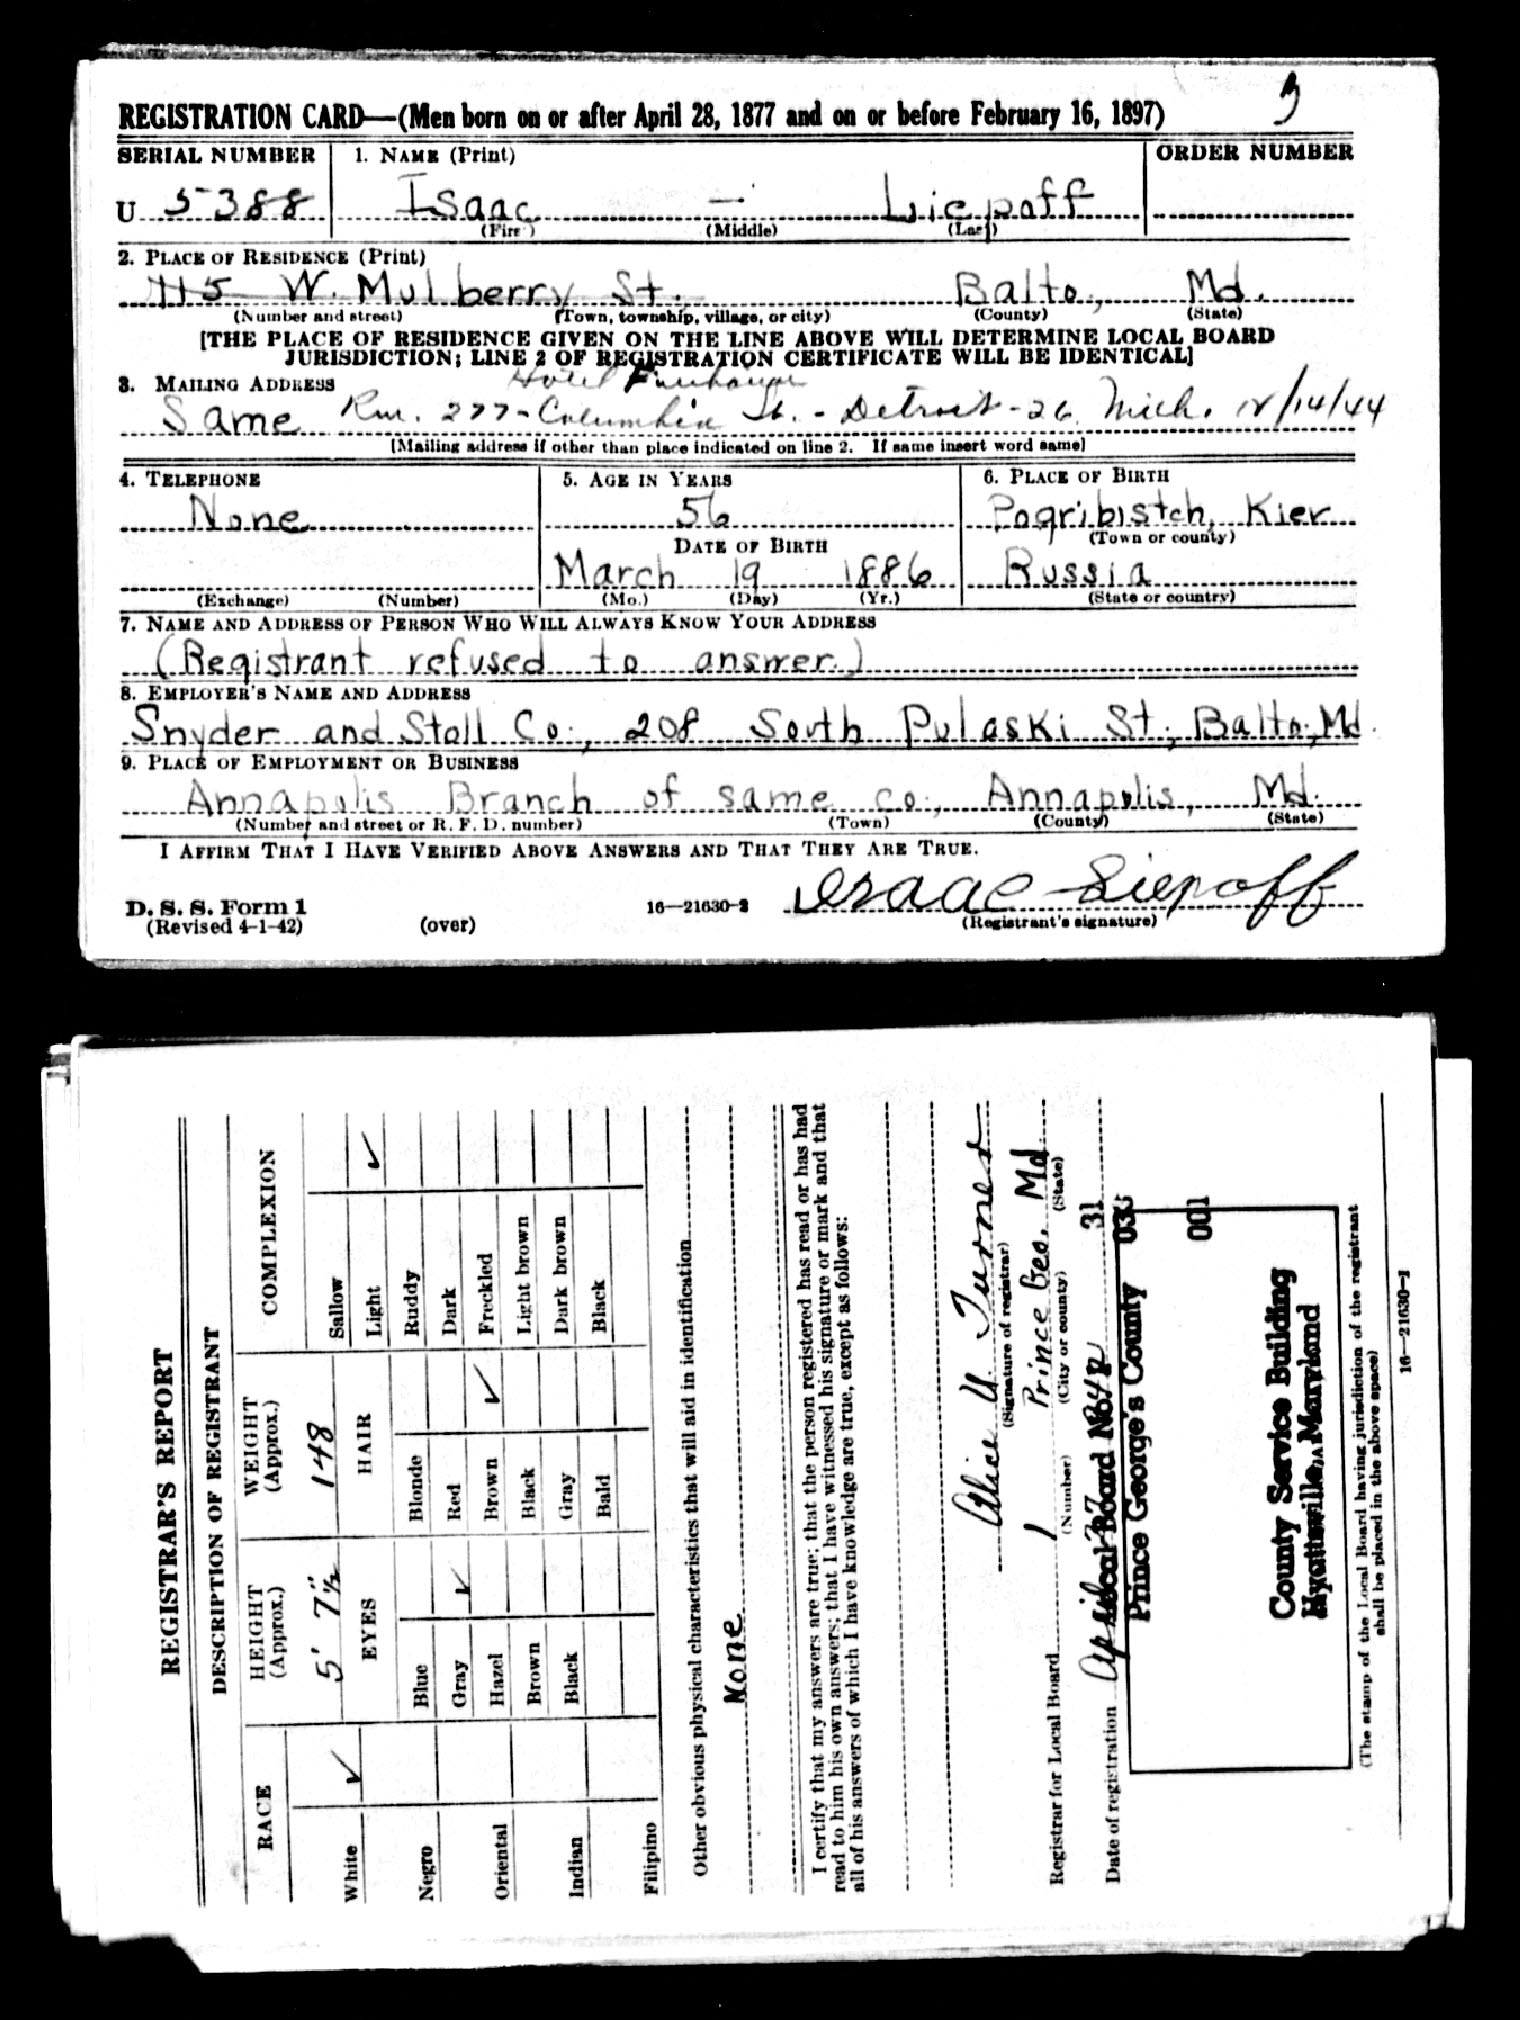 REGISTRATION CARD—(Men born on or after April 28, 1877 and on or before February 16, 1897)
SERIAL NUMBER
1. NAME (Print)
ORDER NUMBER
U 5388
Isaac — Liepoff
(First) (Middle) (Last)
2. PLACE OF RESIDENCE (Print)
115 W. Mulberry St. Balto., Md.
(Number and street) (Town, township, village, or city) (County) (State)
[THE PLACE OF RESIDENCE GIVEN ON THE LINE ABOVE WILL DETERMINE LOCAL BOARD
JURISDICTION; LINE 2 OF REGISTRATION CERTIFICATE WILL BE IDENTICAL]
3. MAILING ADDRESS
Hotel
Same Rm. 277-Columbia St. - Detroit-26, Mich. 12/14/44
[Mailing address if other than place indicated on line 2. If same insert word same]
4. TELEPHONE
None
(Exchange) (Number)
5. AGE IN YEARS
56
DATE OF BIRTH
March 19 1886
(Mo.) (Day) (Yr.)
6. PLACE OF BIRTH
Pogribistch, Kiev
(Town or county)
Russia
(State or country)
7. NAME AND ADDRESS OF PERSON WHO WILL ALWAYS KNOW YOUR ADDRESS
(Registrant refused to answer.)
8. EMPLOYER'S NAME AND ADDRESS
Snyder and Stoll Co., 208 South Pulaski St., Balto., Md.
9. PLACE OF EMPLOYMENT OR BUSINESS
Annapolis Branch of same co., Annapolis, Md.
(Number and street or R. F. D. number) (Town) (County) (State)
I AFFIRM THAT I HAVE VERIFIED ABOVE ANSWERS AND THAT THEY ARE TRUE.
D. S. S. Form 1
(Revised 4-1-42)
(over)
16—21630-2
Isaac Liepoff
(Registrant's signature)
REGISTRAR'S REPORT
DESCRIPTION OF REGISTRANT
RACE
HEIGHT (Approx.)
WEIGHT (Approx.)
COMPLEXION
5' 7½"
148
White ✓
Negro
Oriental
Indian
Filipino
EYES
Blue
Gray ✓
Hazel
Brown
Black
HAIR
Blonde
Red
Brown ✓
Black
Gray
Bald
Sallow
Light ✓
Ruddy
Dark
Freckled
Light brown
Dark brown
Black
Other obvious physical characteristics that will aid in identification
None
I certify that my answers are true; that the person registered has read or has had
read to him his own answers; that I have witnessed his signature or mark and that
all of his answers of which I have knowledge are true, except as follows:
Alice U. Turner
(Signature of registrar)
Registrar for Local Board 1 Prince Geo. Md.
(Number) (City or county) (State)
Date of registration April 27 1942
Local Board No. 1 31
Prince George's County 033
001
County Service Building
Hyattsville, Maryland
(The stamp of the Local Board having jurisdiction of the registrant
shall be placed in the above space)
16—21630-1